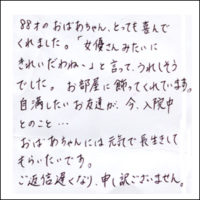 88才のおばあちゃん、とっても喜んで
くれました。「女優さんみたいに
きれいだわね〜」と言って、うれしそう
でした。お部屋に飾ってくれています。
自満したいお友達が、今、入院中
とのこと…
おばあちゃんには元気で長生きして
もらいたいです。
ご返信遅くなり、申し訳ございません。